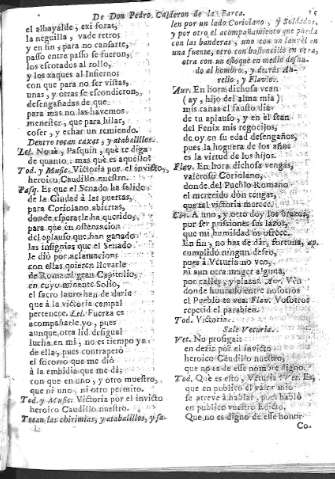 De Don Pedro Calderon de la Barca.
el albayalde, exi foras,
la neguilla, vade retros
y en fin, para no cansarte,
passo entre passo se fueron,
los escotados al rollo,
y los xaques al Infierno
con que para no ser vistas,
unas, y otras se escondieron,
desengañadas de que
para mas no las havemos
menester, que para hilar,
coser, y echar un remiendo.
Dentro tocan caxas, y atabalillos.
Lel. No sè, Pasquin, què te diga
de quanto; mas què es aquello?
Tod. y Music. Victoria por el invicto,
heroico Caudillo nuestro.
Pasq. Es que el Senado ha salido
de la Ciudad à las puertas,
para Coriolano abiertas,
donde esperarle ha querido,
para que en ostentacion
del aplauso que han ganado
las insignias que el Senado
le diò por aclamacion
con ellas quieren llevarle
de Roma al gran Capitolio,
en cuyo eminente Solio,
el sacro laurel han de darle
que à la victoria compal
pertenece. Lel. Fuerza es
acompañarle yo, pues
aunque otra lid desigual
lucha en mi, no es tiempo ya
de ella, pues contraperò
el socorro que me diò
à la embidia que me dà;
con que en uno, y otro muestro,
que ni uno, ni otro permito.
Tod. y Music. Victoria por el invicto
heroico Caudillo nuestro.
Tocan las chirimias, y atabalillos, y sa-
len por un lado Coriolano, y Soldados,
y por otro el acompañamiento que pueda
con las banderas, uno con un laurèl en
una fuente, otro con bastoncillo en otra,
otra con un estoque en medio desnu-
do al hombro, y detràs Au-
relio, y Flavio.
Aur. En hora dichosa vean
(ay, hijo del alma mia)
mis canas el fausto dia
de tu aplauso, y en èl sean
del Fenix mis regocijos,
de oy en su edad desengaños,
pues la hoguera de los años
es la virtud de los hijos.
Flav. En hora dichosa vengas,
valeroso Coriolano,
donde del Pueblo Romano
el merecido dòn tengas,
que tal victoria merece.
Cor. A uno, y otro doy los brazos,
por ser prisiones sus lazos,
que mi humildad os ofrece.
En fin, no has de dàr, fortuna, ap.
cumplido ningun deseo,
pues à Veturia no veo,
ni aun otra muger alguna,
por calles, y plazas. Aur. Vèn
donde honrando entre nosotros
el Pueblo te vea. Flav. Vosotros
repetid el parabien.
Tod. Victoria.
Sale Veturia.
Vet. No prosigais
en decir por el invicto
heroico Caudillo nuestro,
que no es de esse nombre digno.
Tod. Què es esto, Veturia? Vet. Es,
que en publico el valor mio
se atreve à hablar, pues hablò
en publico vuestro Edicto.
Que no es digno de esse honor
Co-